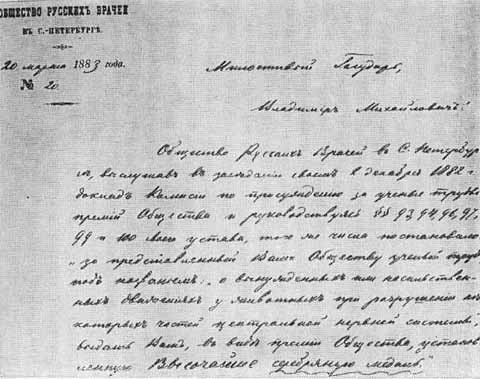 ОБЩЕСТВО РУССКИХЪ ВРАЧЕЙ
ВЪ С.-ПЕТЕРБУРГѢ.
20 марта 1883 года.
№ 20.
Милостивый Государь,
Владиміръ Михайловичъ!
Общество Русскихъ Врачей въ С. Петербур
гѣ, выслушавъ въ засѣданіи своемъ въ декабрѣ 1882
докладъ Комисіи по присужденію за ученые труды
премій Общества и руководствуясь §§ 93, 94, 96, 97,
99 и 100 своего устава, того же числа постановило
„за представленный Вами Обществу ученый трудъ
подъ названіемъ „о вынужденныхъ или насильствен-
ныхъ движеніяхъ у животныхъ при разрушеніи нѣ
которыхъ частей центральной нервной системы",
выдать Вамъ, въ видѣ преміи Общества, установ
ленную Высочайше серебряную медаль".